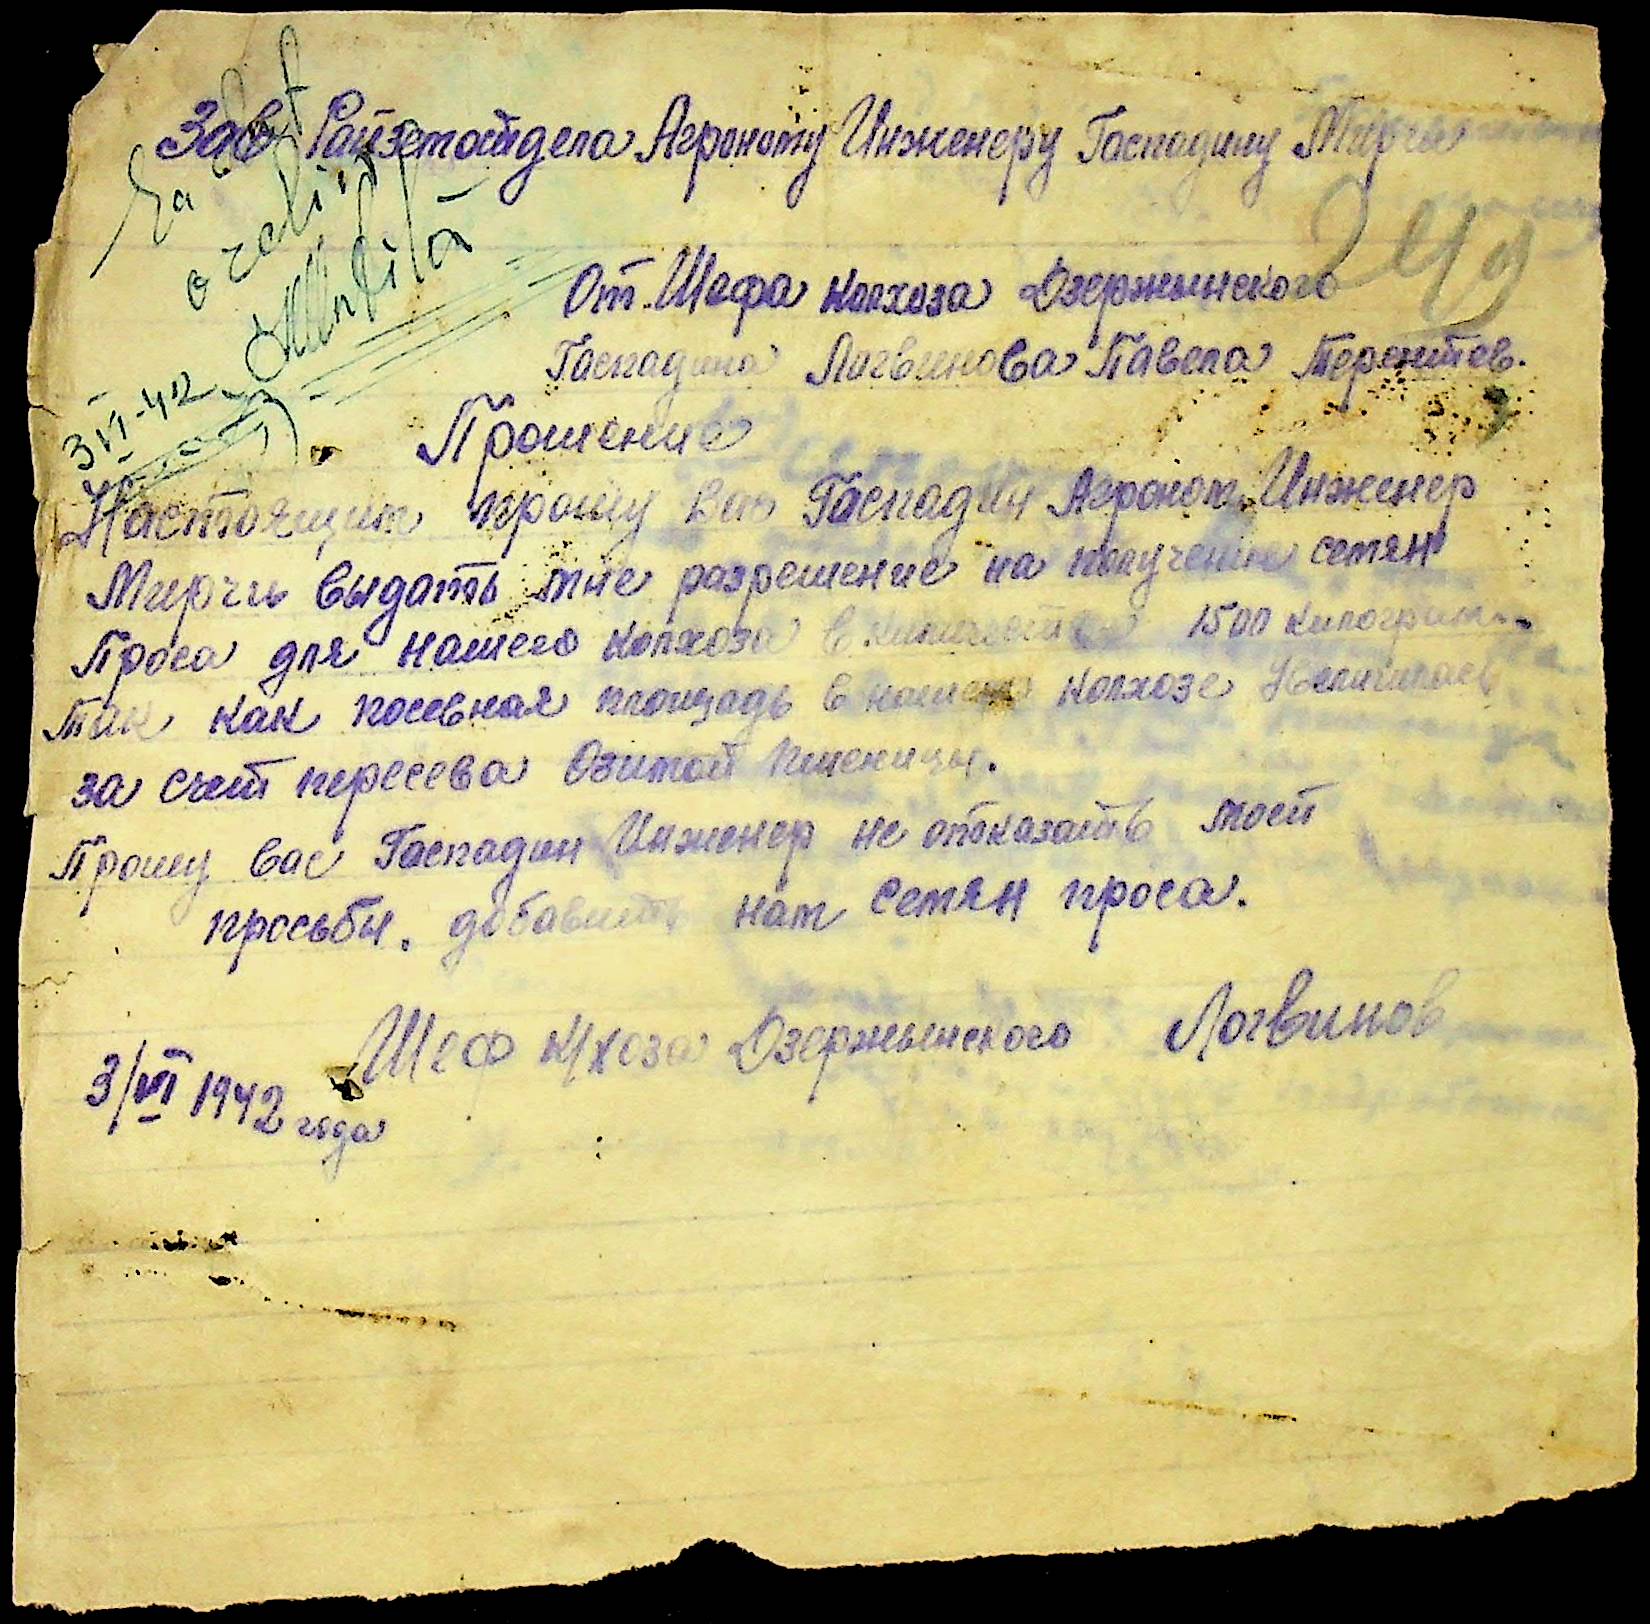 Зав Райземотдела Агроному Инженеру Гаспадину Мирчи
249
От Шефа колхоза Дзержынского
Гаспадина Логвинова Павела Терентев.
3 VI-42
Прошение
Настоящим прошу вас Гаспадин Агроном, Инженер
Мирчи выдать мне разрешение на получение семян
Проса для нашего колхоза в количестве 1500 килограм..
Так как посевная площадь в нашем колхозе увеличилась
за счет пересева Озимой пшеницы.
Прошу вас Гаспадин Инженер не отоказать моей
просьбы. добавить нам семян проса.
Шеф К/хоза Дзержынского Логвинов
3/VI 1942 года